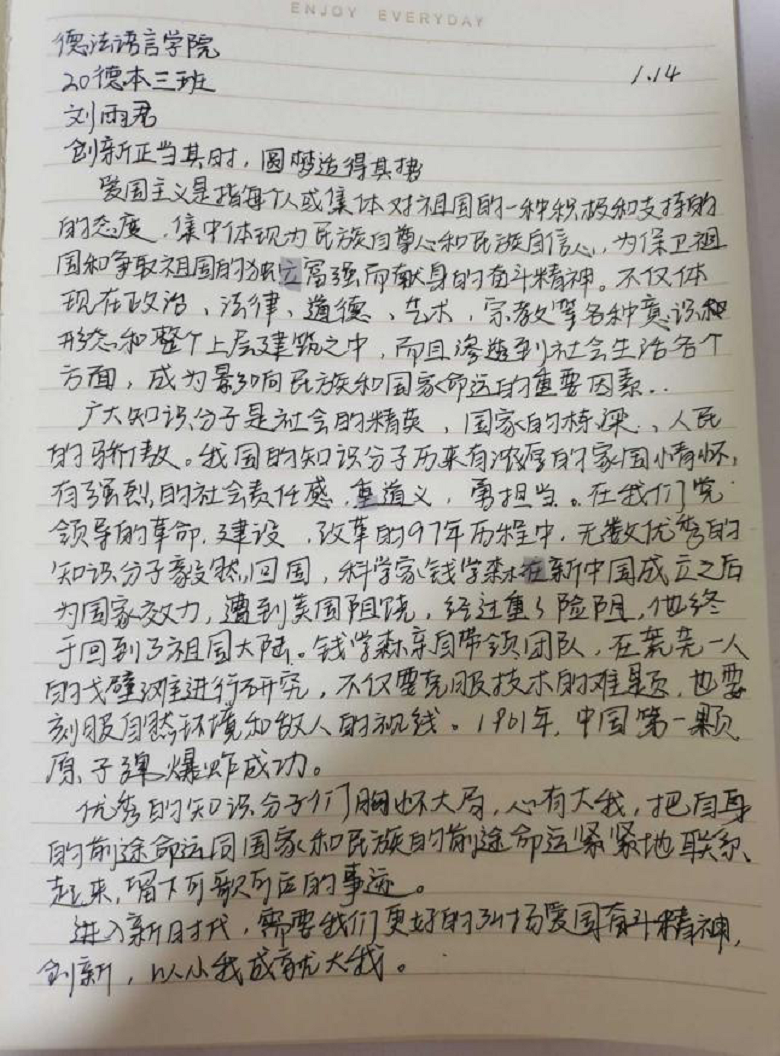 ENJOY EVERYDAY
德法语言学院
20德本三班 1.14
刘雨君
创新正当其时,圆梦适得其势
爱国主义是指每个人或集体对祖国的一种积极和支持的
的态度,集中体现为民族自尊心和民族自信心,为保卫祖
国和争取祖国的独立富强而献身的奋斗精神。不仅体
现在政治、法律、道德、艺术、宗教等各种意识和
形态和整个上层建筑之中,而且渗透到社会生活各个
方面,成为影响民族和国家命运的重要因素..
广大知识分子是社会的精英、国家的栋梁、、人民
的骄傲。我国的知识分子历来有浓厚的家国情怀,
有强烈的社会责任感,重道义,勇担当。在我们党
领导的革命、建设、改革的97年历程中,无数优秀的
知识分子毅然回国,科学家钱学森在新中国成立之后
为国家效力,遭到美国阻饶,经过重重险阻,他终
于回到了祖国大陆。钱学森亲自带领团队,在荒芜一人
的戈壁滩进行研究,不仅要克服技术的难题,也要
刻服自然环境和敌人的视线。1961年,中国第一颗
原子弹爆炸成功。
优秀的知识分子们胸怀大局,心有大我,把自身
的前途命运同国家和民族的前途命运紧紧地联系
起来,留下可歌可泣的事迹。
进入新时代,需要我们更好的弘扬爱国奋斗精神,
创新,以小我成就大我。